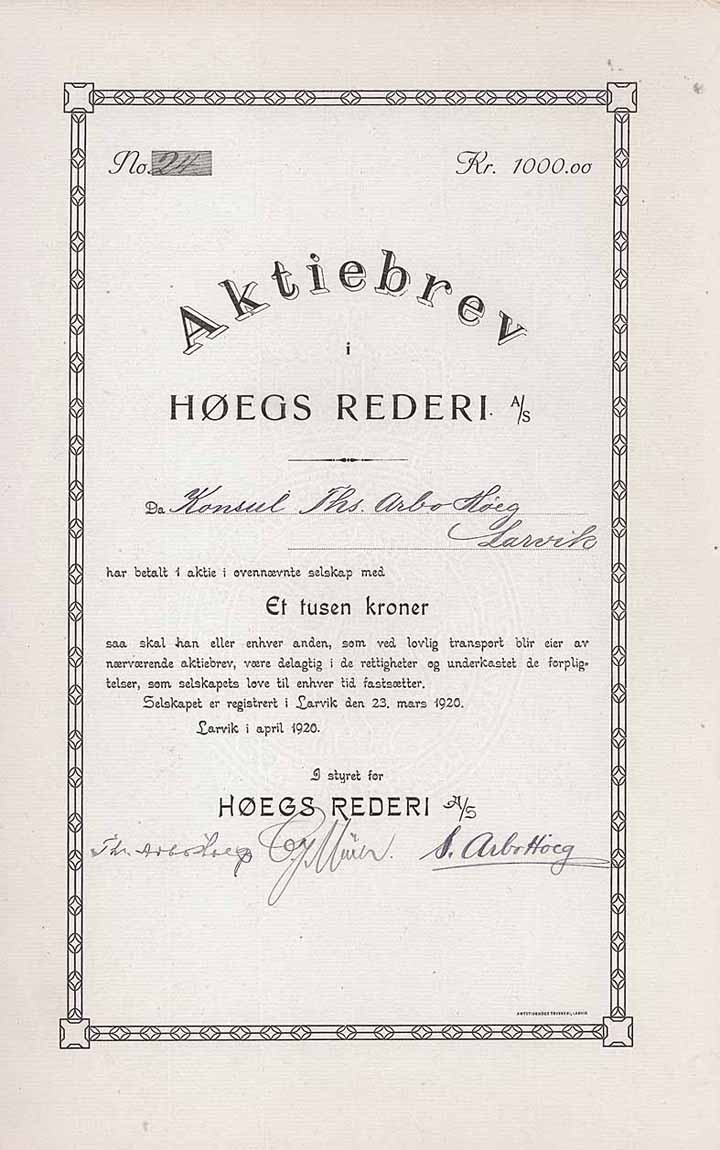 No. 24
Kr. 1000.00
Aktiebrev
i
HØEGS REDERI. A/S
Da Konsul Ths. Arbo Høeg
Larvik
har betalt 1 aktie i ovennævnte selskap med
Et tusen kroner
saa skal han eller enhver anden, som ved lovlig transport blir eier av
nærværende aktiebrev, være delagtig i de rettigheter og underkastet de forplig-
telser, som selskapets love til enhver tid fastsætter.
Selskapet er registrert i Larvik den 23. mars 1920.
Larvik i april 1920.
I styret for
HØEGS REDERI A/S
Th. Arbo Høeg S. Arbo Høeg